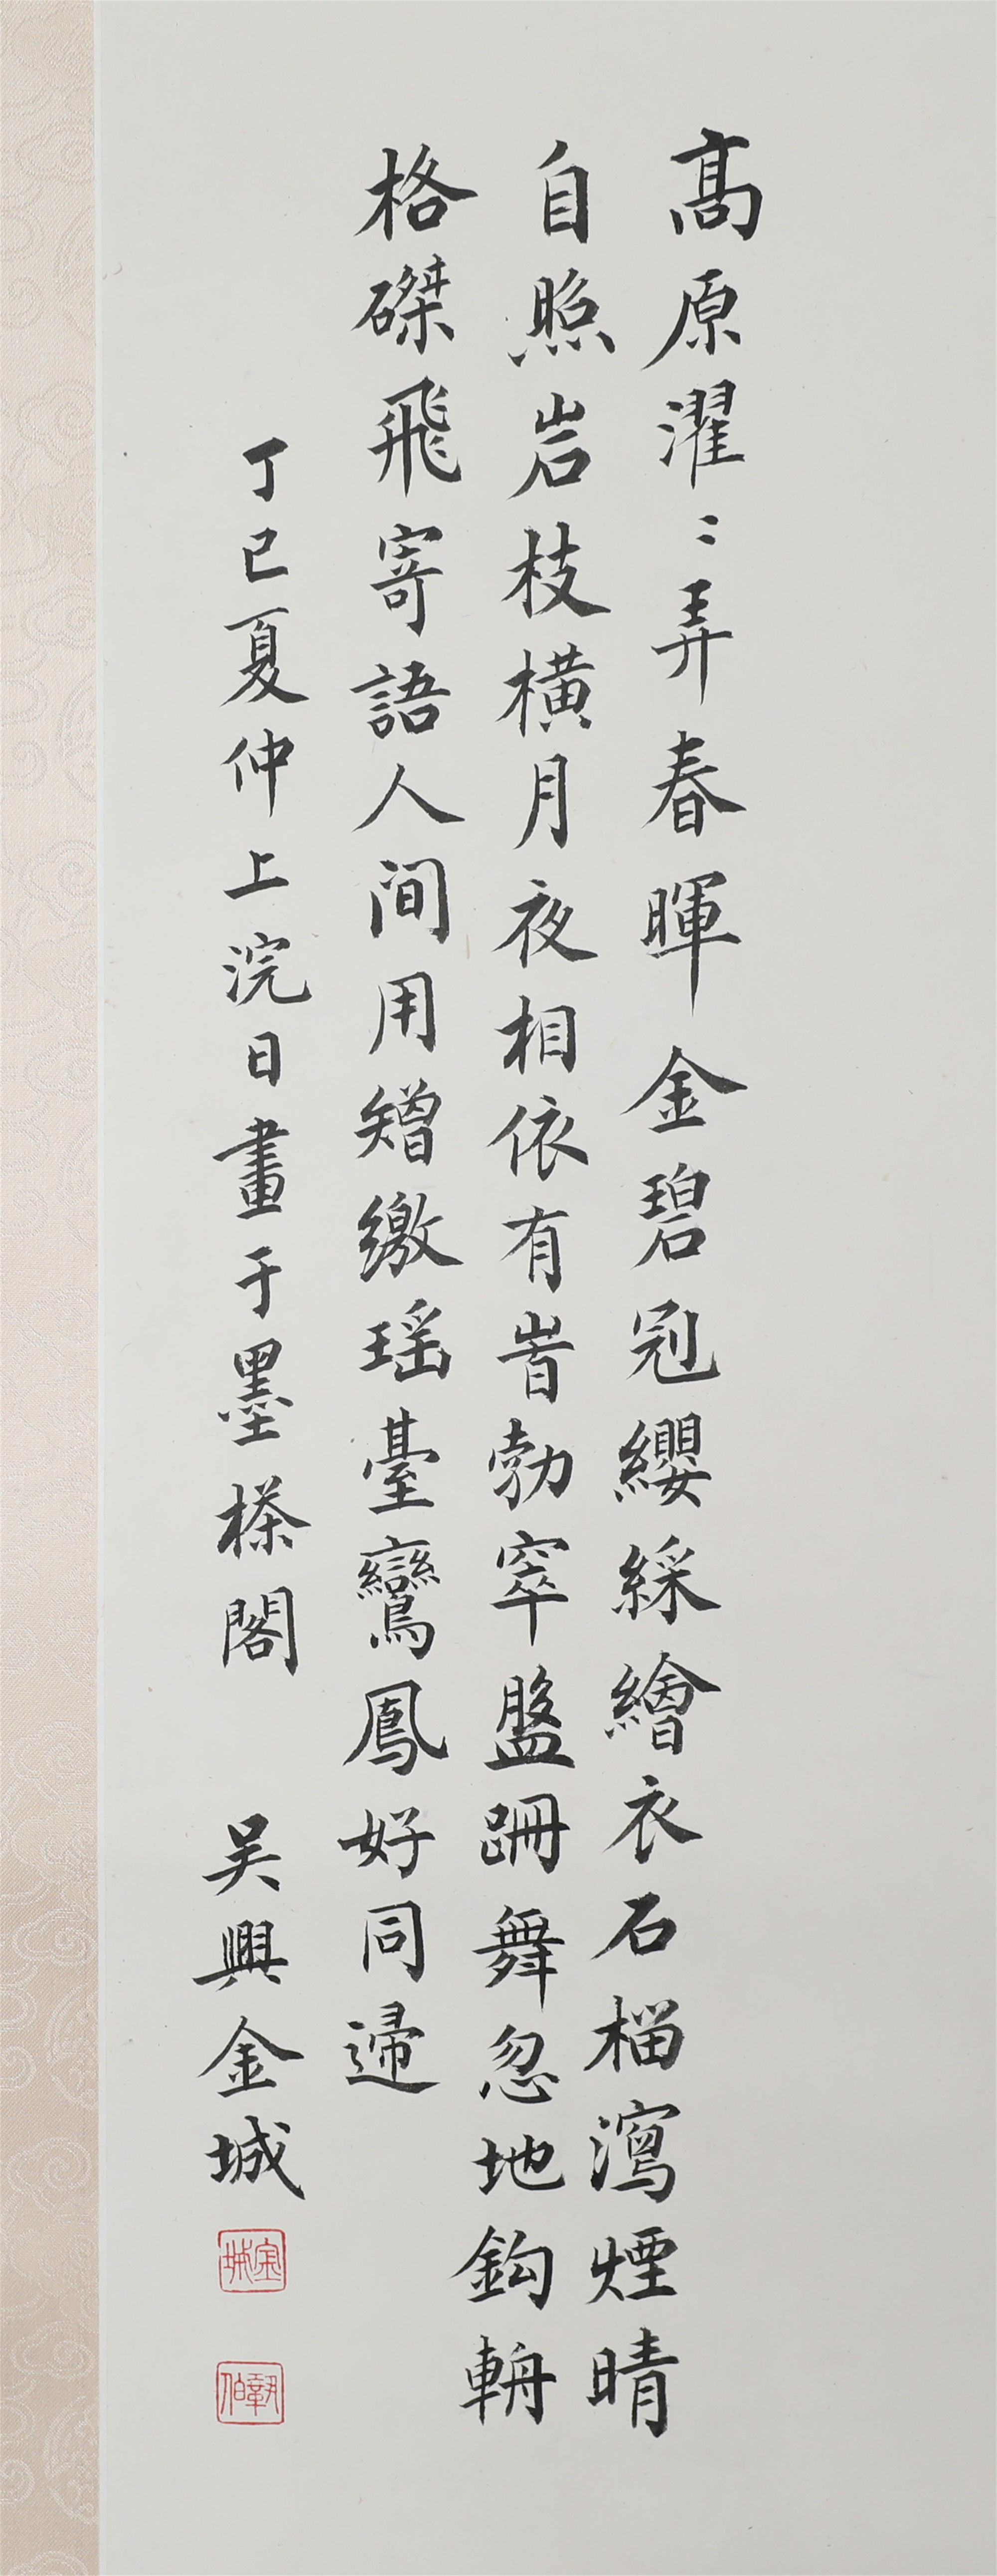 髙原濯〻弄春暉金碧冠纓綵繪衣石榴瀉煙晴
自照岩枝橫月夜相依有旹勃窣盤跚舞忽地鈎輈
格磔飛寄語人间用矰缴瑶臺鸞鳳好同歸
丁巳夏仲上浣日畫于墨楺閣
吴興金城
金城
鞏伯